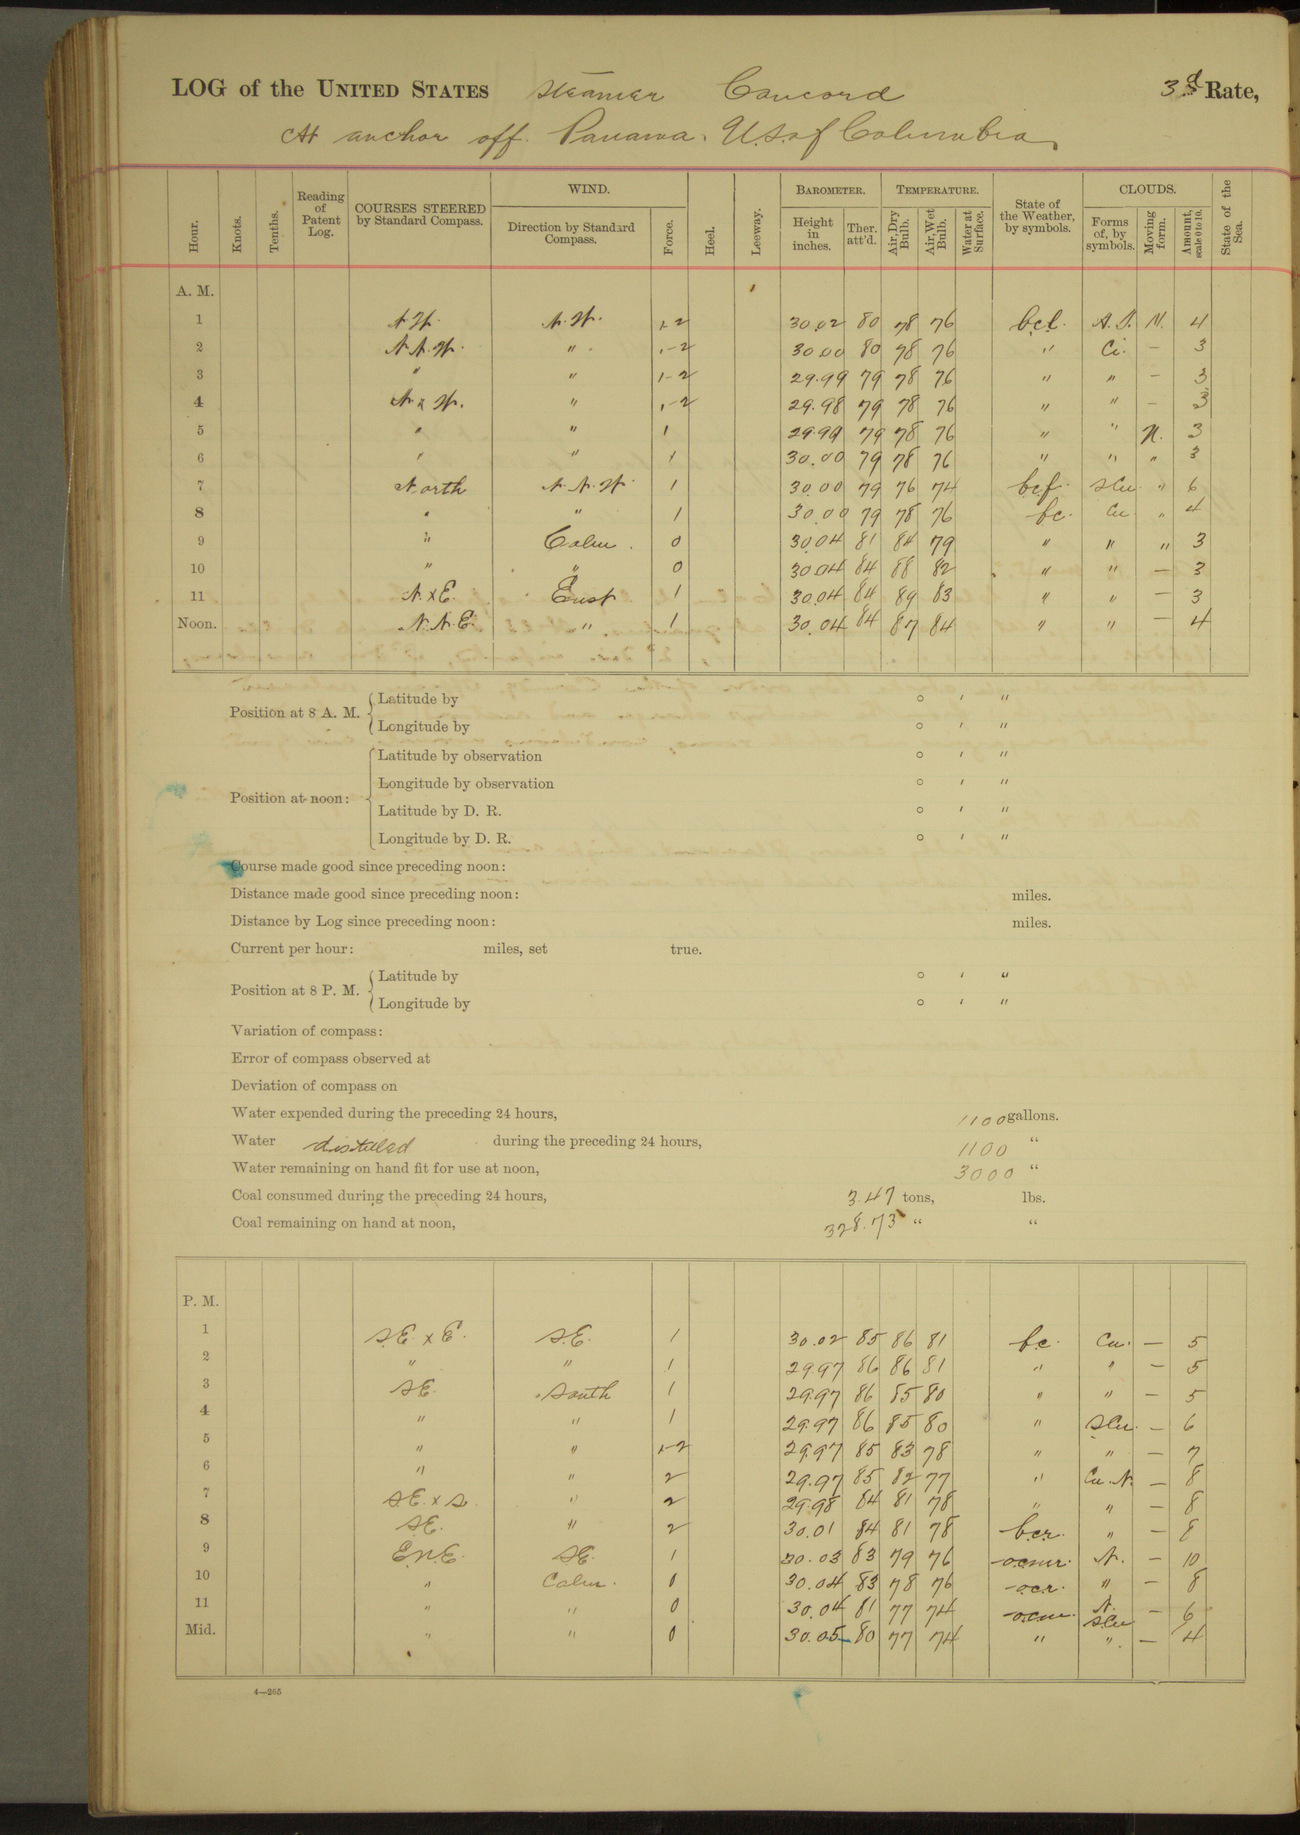 LOG of the UNITED STATES Steamer Concord 3d Rate,
At anchor off Panama, U.S. of Columbia
Hour. Knots. Tenths. Reading of Patent Log. COURSES STEERED by Standard Compass. WIND. Direction by Standard Compass. Force. Heel. Leeway. BAROMETER. Height in inches. Ther. att'd. TEMPERATURE. Air, Dry Bulb. Air, Wet Bulb. Water at Surface. State of the Weather, by symbols. CLOUDS. Forms of, by symbols. Moving form. Amount, scale 0 to 10. State of the Sea.
A. M.
1 N.W. N.W. 1-2 30.02 80 78 76 b.c.l. N. 4
2 N.N.W. " 1-2 30.00 80 78 76 " Ci. — 3
3 " " 1-2 29.99 79 78 76 " " — 3
4 N. x W. " 1-2 29.98 79 78 76 " " — 3
5 " " 1 29.99 79 78 76 " " N. 3
6 " " 1 30.00 79 78 76 " " " 3
7 North N.N.W. 1 30.00 79 76 74 b.c.f. S.Cu. " 6
8 " " 1 30.00 79 78 76 b.c. Cu. " 4
9 " Calm. 0 30.04 81 84 79 " " " 3
10 " " 0 30.04 84 88 82 " " — 3
11 N. x E. East 1 30.04 84 89 83 " " — 3
Noon. N.N.E. " 1 30.04 84 87 84 " " — 4
Position at 8 A. M.
Latitude by ° ' "
Longitude by ° ' "
Position at noon:
Latitude by observation ° ' "
Longitude by observation ° ' "
Latitude by D. R. ° ' "
Longitude by D. R. ° ' "
Course made good since preceding noon:
Distance made good since preceding noon: miles.
Distance by Log since preceding noon: miles.
Current per hour: miles, set true.
Position at 8 P. M.
Latitude by ° ' "
Longitude by ° ' "
Variation of compass:
Error of compass observed at
Deviation of compass on
Water expended during the preceding 24 hours, 1100 gallons.
Water distilled during the preceding 24 hours, 1100 "
Water remaining on hand fit for use at noon, 3000 "
Coal consumed during the preceding 24 hours, 3.47 tons, lbs.
Coal remaining on hand at noon, 328.73 " "
P. M.
1 S.E. x E. S.E. 1 30.02 85 86 81 b.c. Cu. — 5
2 " " 1 29.97 86 86 81 " " — 5
3 S.E. South 1 29.97 86 85 80 " " — 5
4 " " 1 29.97 86 85 80 " S.Cu. — 6
5 " " 1-2 29.97 85 83 78 " " — 7
6 " " 2 29.97 85 82 77 " Cu.N. — 8
7 S.E. x S. " 2 29.98 84 81 78 " " — 8
8 S.E. " 2 30.01 84 81 78 b.c.r. " — 8
9 E.N.E. S.E. 1 30.03 83 79 76 N. — 10
10 " Calm. 0 30.04 83 78 76 o.c.r. " — 8
11 " " 0 30.04 81 77 74 N. S.Cu — 6
Mid. " " 0 30.05 80 77 74 " " — 4
4—265